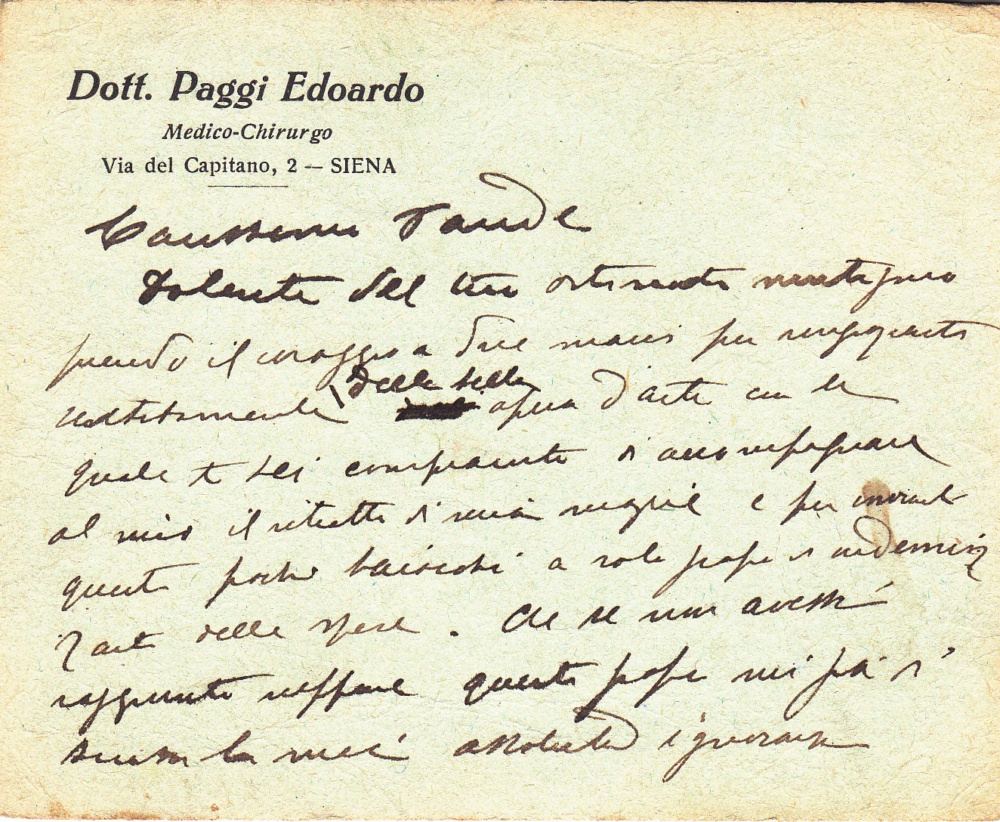 Dott. Paggi Edoardo
Medico-Chirurgo
Via del Capitano, 2 — SIENA
Carissimo
Dolente del tuo ostinato
prendo il coraggio a due mani per ringraziarti
della bella
opera d'arte con la
quale ti sei compiaciuto di accompagnare
al mio il ritratto di mia moglie e per inviarti
questi pochi baiocchi a solo scopo di indenniz
zarti delle spese. Che se non avessi
raggiunto neppure questo scopo mi sia di
scusa la mia assoluta ignoranza